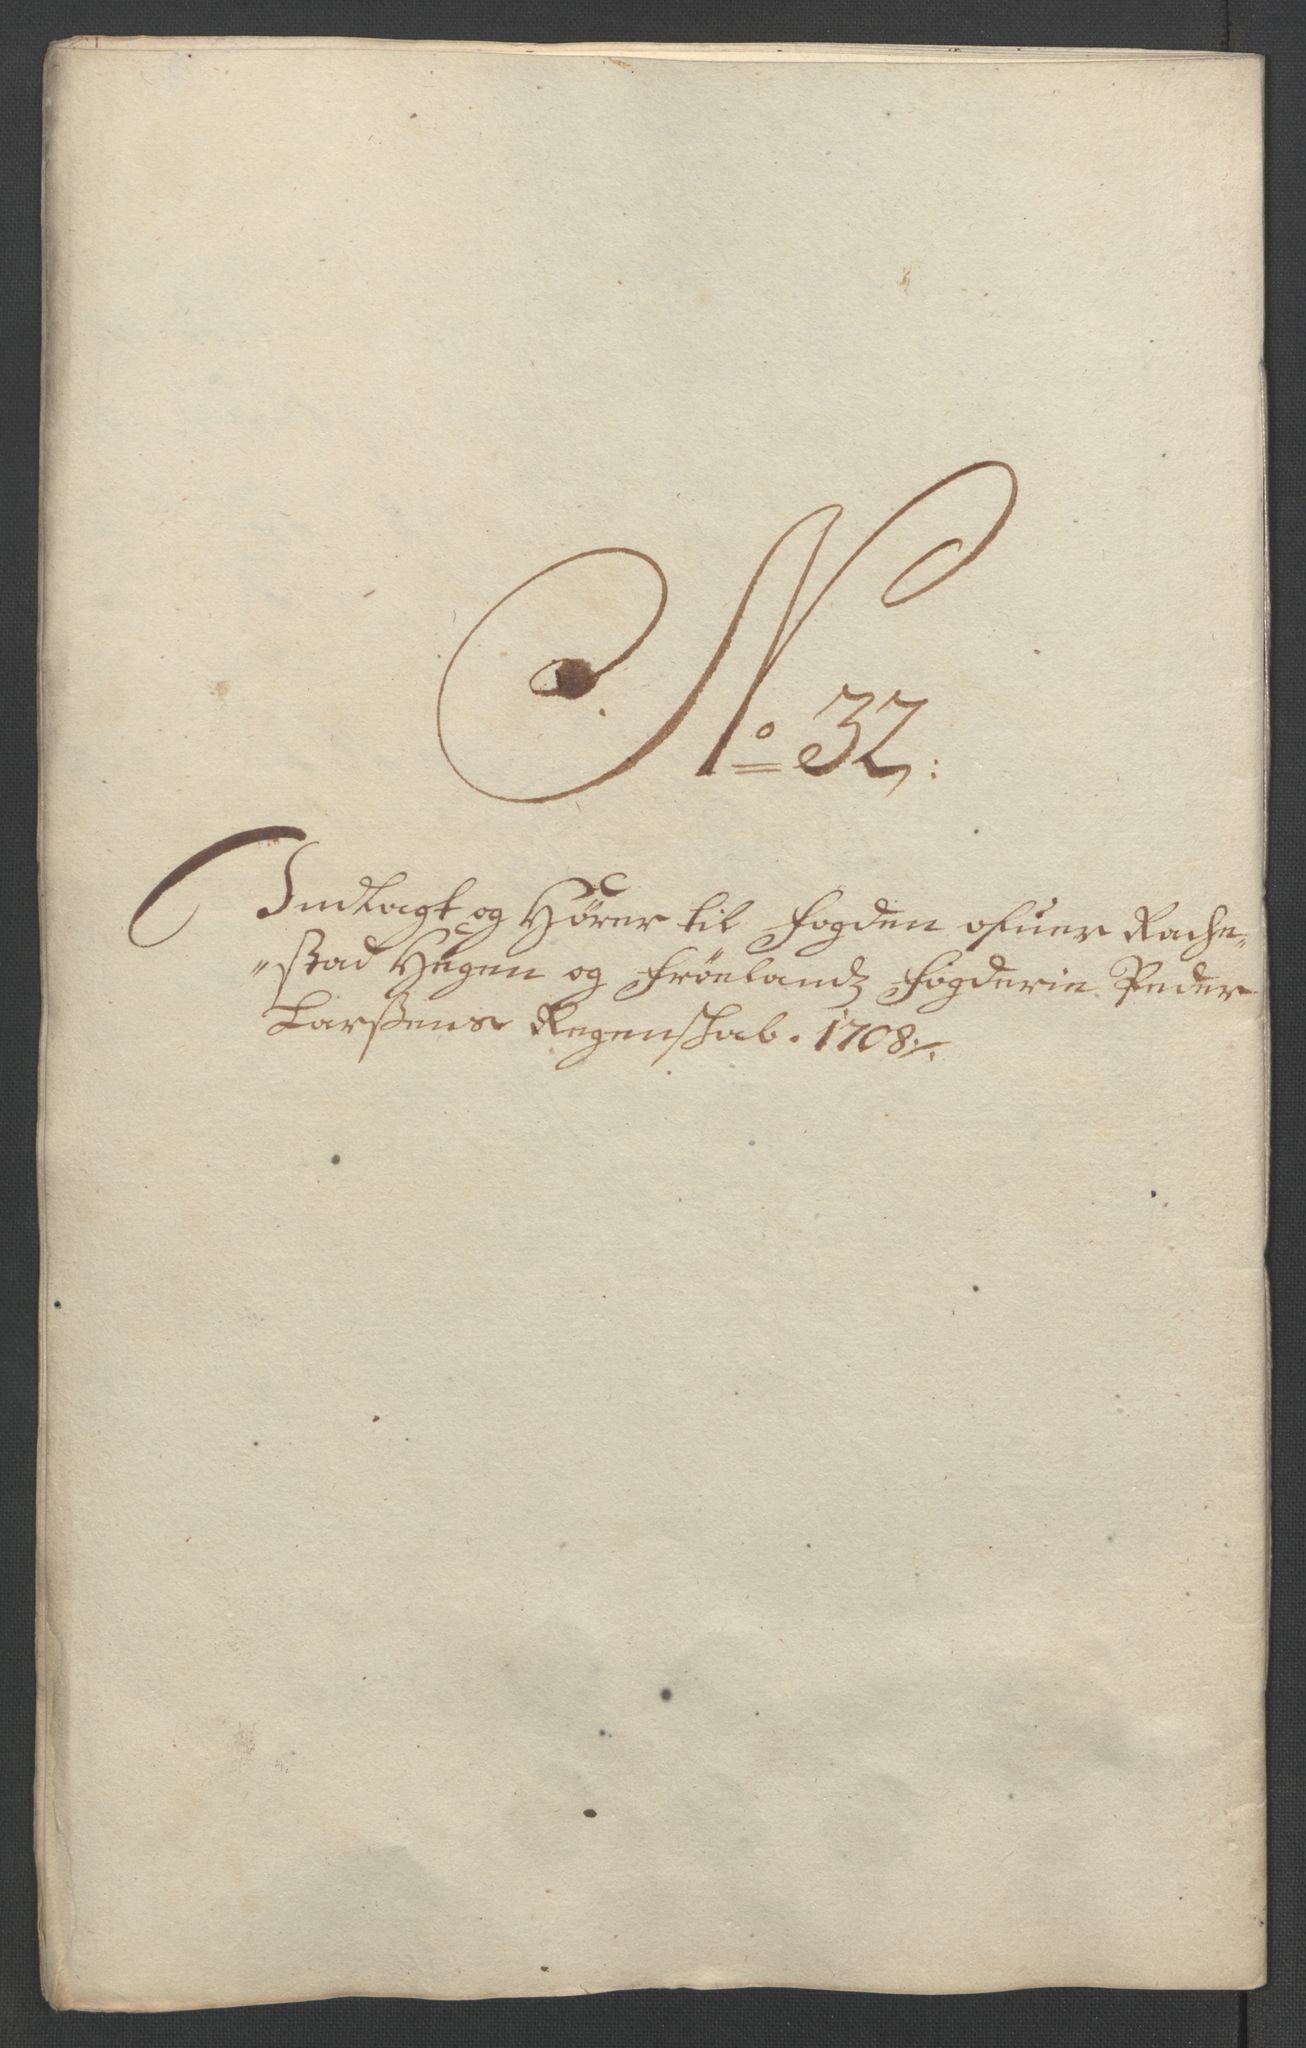 No 32:
Indlagt og Hörer til fogden ofuer Rache=
=stad Heggen og Fröelandz fogderie Peder
Larßens Regenskab. 1708./.